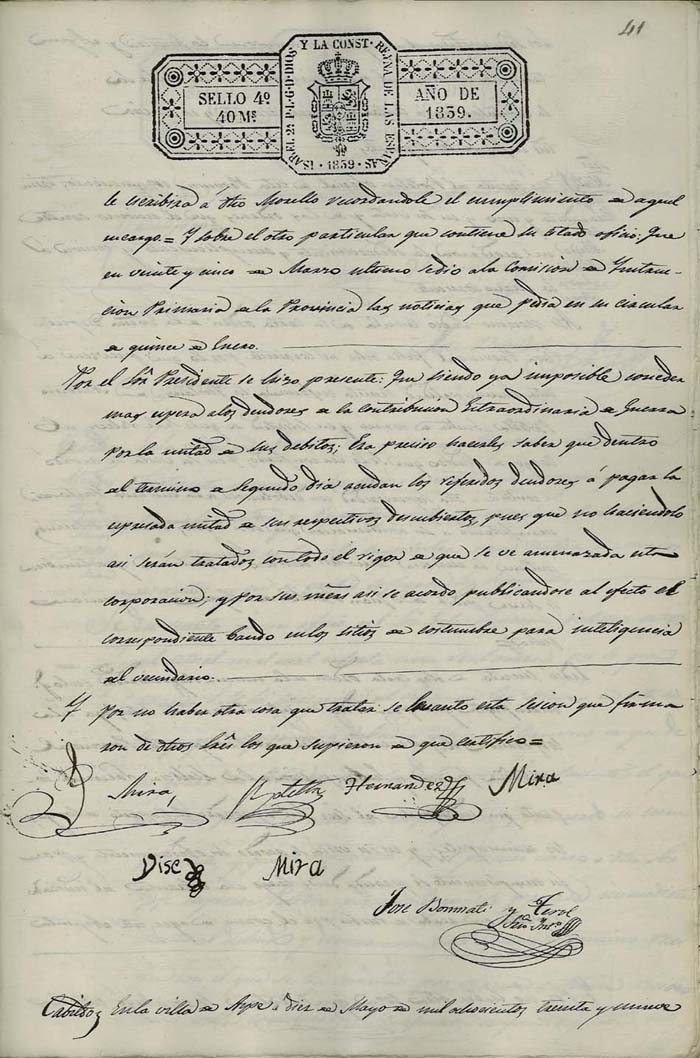 41
ISABEL 2ª P. L. G. D. DIOS Y LA CONST. REYNA DE LAS ESPAÑAS
SELLO 4º
40 Ms
AÑO DE
1839.
1839
le escribira á dho Morello recordandole el cumplimiento de aquel
encargo. = Y sobre el otro particular que contiene su citado oficio: Que
en veinte y cinco de Marzo ultimo se dio a la Comision de Instruc-
cion Primaria de la Provincia las noticias que pedia en su circular
de quince de Enero.
Por el Sor. Presidente se hizo presente: Que siendo ya imposible conceder
mas espera a los deudores de la contribucion Extraordinaria de Guerra
por la mitad de sus debitos; Era preciso hacerles saber que dentro
el termino de Segundo dia acudan los referidos deudores á pagar la
espresada mitad de sus respectivos descubiertos, pues que no haciendolo
asi serán tratados con todo el rigor de que se ve amenazada esta
corporacion; y por sus mrds asi se acordo publicandose al efecto el
correspondiente bando en los sitios de costumbre para inteligencia
del vecindario.
Y por no haber otra cosa que tratar se levanto esta sesion que firma
ron de dhos Sres los que supieron de que certifico =
Mira, Hernandez Mira
Dise Mira
José Bonmati y Terol
Srio Into
Cabildo En la villa de Aspe á diez de Mayo de mil ochocientos treinta y nueve